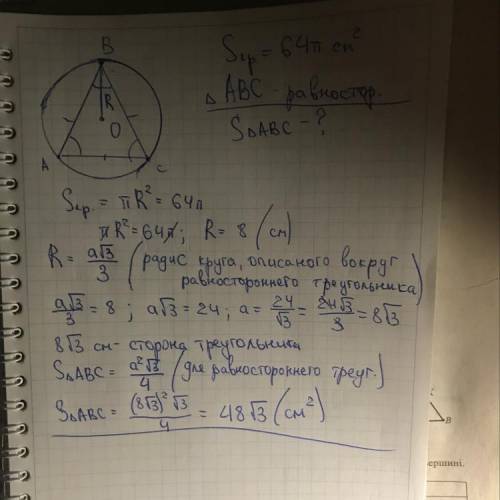 B
R
O
A
C
Sкр = 64π см²
△ ABC - равностор.
S△ABC - ?
Sкр. = πR² = 64π
πR² = 64π ; R = 8 (см)
R = a√3/3 (радиус круга, описаного вокруг
равностороннего треугольника)
a√3/3 = 8 ; a√3 = 24 ; a = 24/√3 = 24√3/3 = 8√3
8√3 см - сторона треугольника
S△ABC = a²√3/4 (для равностороннего треуг.)
S△ABC = (8√3)²√3/4 = 48√3 (см²)
B
ершині.